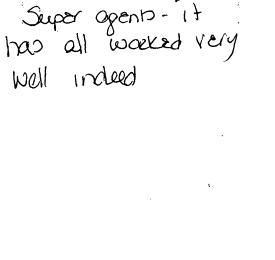 Super agents - it
has all worked very
well indeed